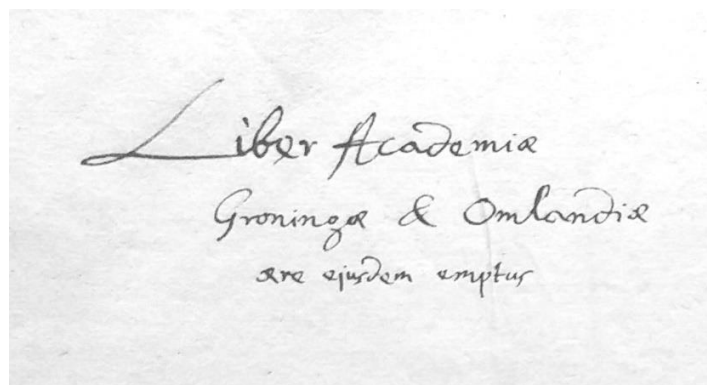 Liber Academiæ
Groningæ & Omlandiæ
ære ejusdem emptus